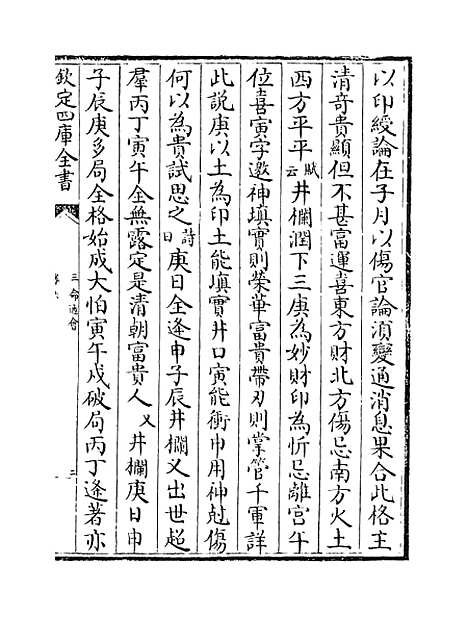 以印綬論在子月以傷官論湏變通消息果合此格主
清奇貴顯但不甚富運喜東方財北方傷忌南方火土
西方平平賦云井欄潤下三庚為妙財印為忻忌離宮午
位喜寅字邀神填實則榮華富貴帶刃則掌管千軍詳
此説庚以土為印土能填實井口寅能衝申用神尅傷
何以為貴試思之詩曰庚日全逢申子辰井欄义出世超
羣丙丁寅午全無露定是清朝富貴人又井欄庚日申
子辰庚多局全格始成大怕寅午戍破局丙丁逢著亦
欽定四庫全書
三命通會
三